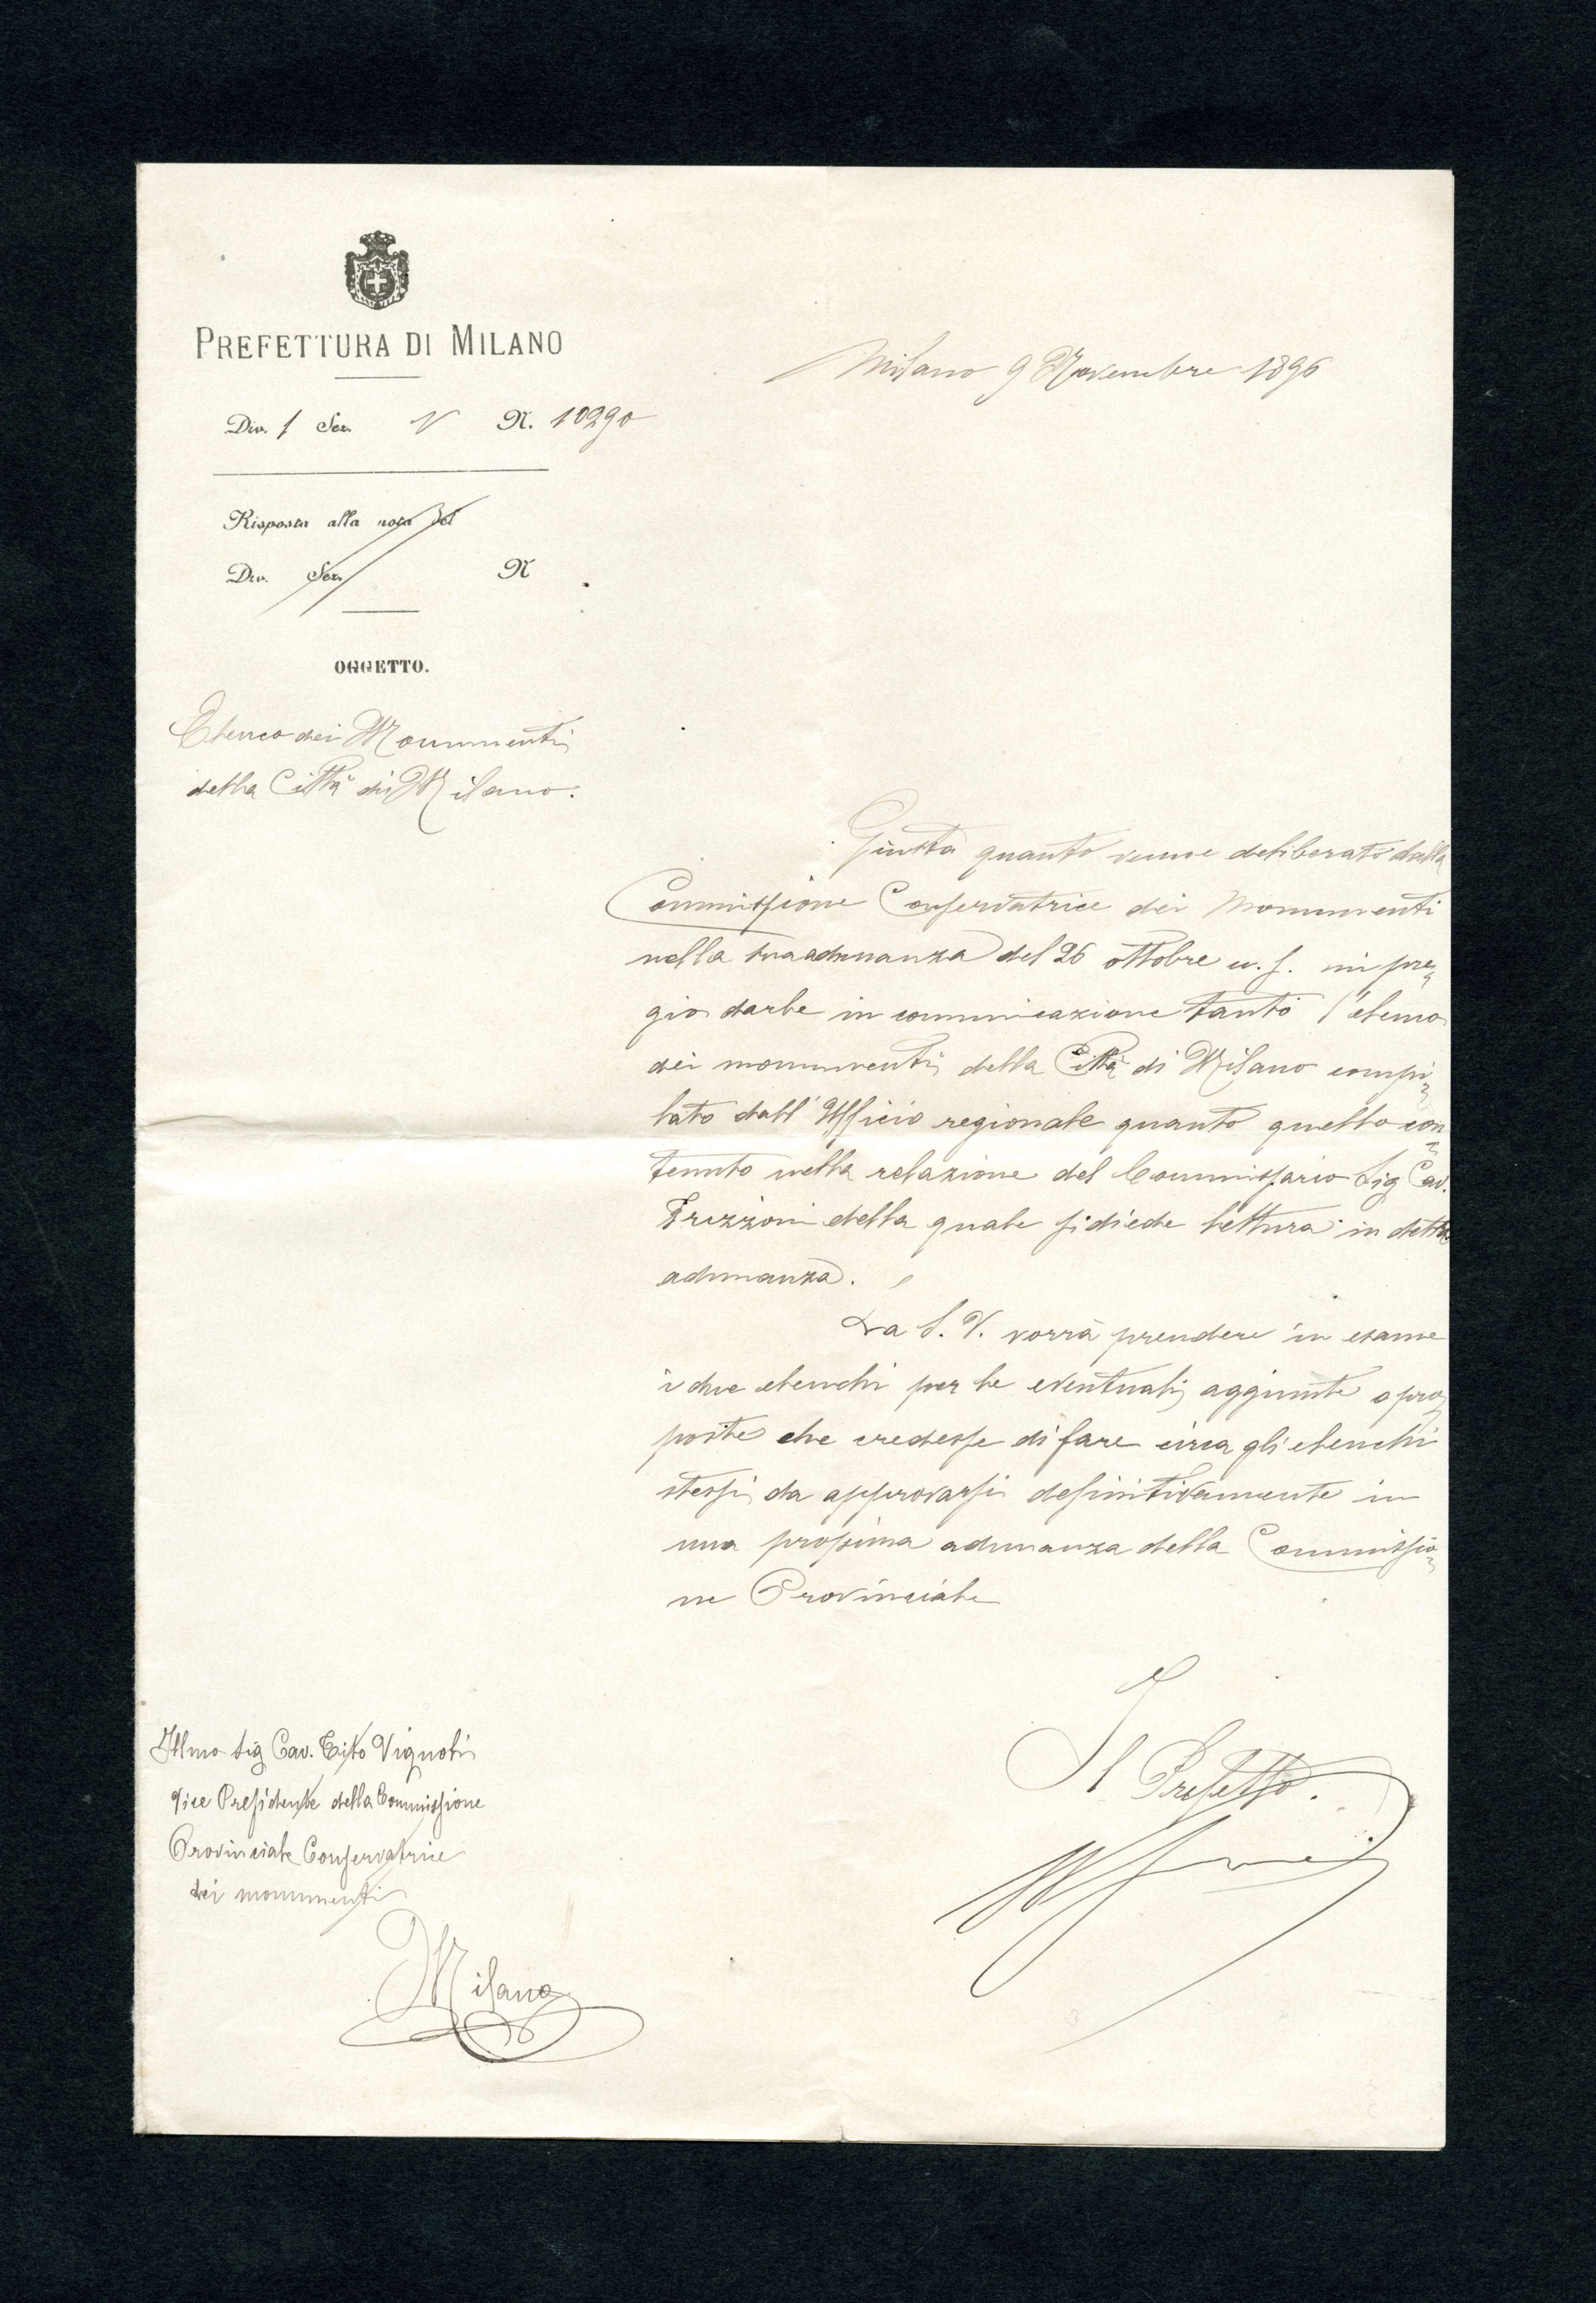 PREFETTURA DI MILANO
Div. 1 Sez. V N. 10290
Risposta alla nota del
Div. Sez. N
OGGETTO.
Elenco dei Monumenti
della Città di Milano.
Milano 9 Novembre 1896
Giusta quanto venne deliberato dalla
Commissione Conservatrice dei Monumenti
nella sua adunanza del 26 ottobre u. s. mi pre=
gio darle in comunicazione tanto l'elenco
dei monumenti della Città di Milano compi=
lato dall'Ufficio regionale quanto quello con=
tenuto nella relazione del Commissario Sig Cav.
Frizzoni della quale si diede lettura in detta
adunanza.
La S. V. vorrà prendere in esame
i due elenchi per le eventuali aggiunte o pro=
poste che credesse di fare circa gli elenchi
stessi da approvarsi definitivamente in
una prossima adunanza della Commissio=
ne Provinciale
Il Prefetto.
Illmo Sig Cav. Tito Vignoli
Vice Presidente della Commissione
Provinciale Conservatrice
dei monumenti
Milano